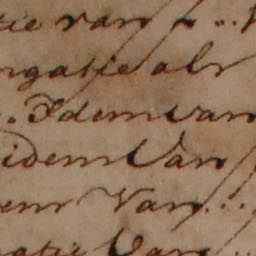 tie van f... 
ngatie als
.. Idem van
idem Van
em Van...
atie Van